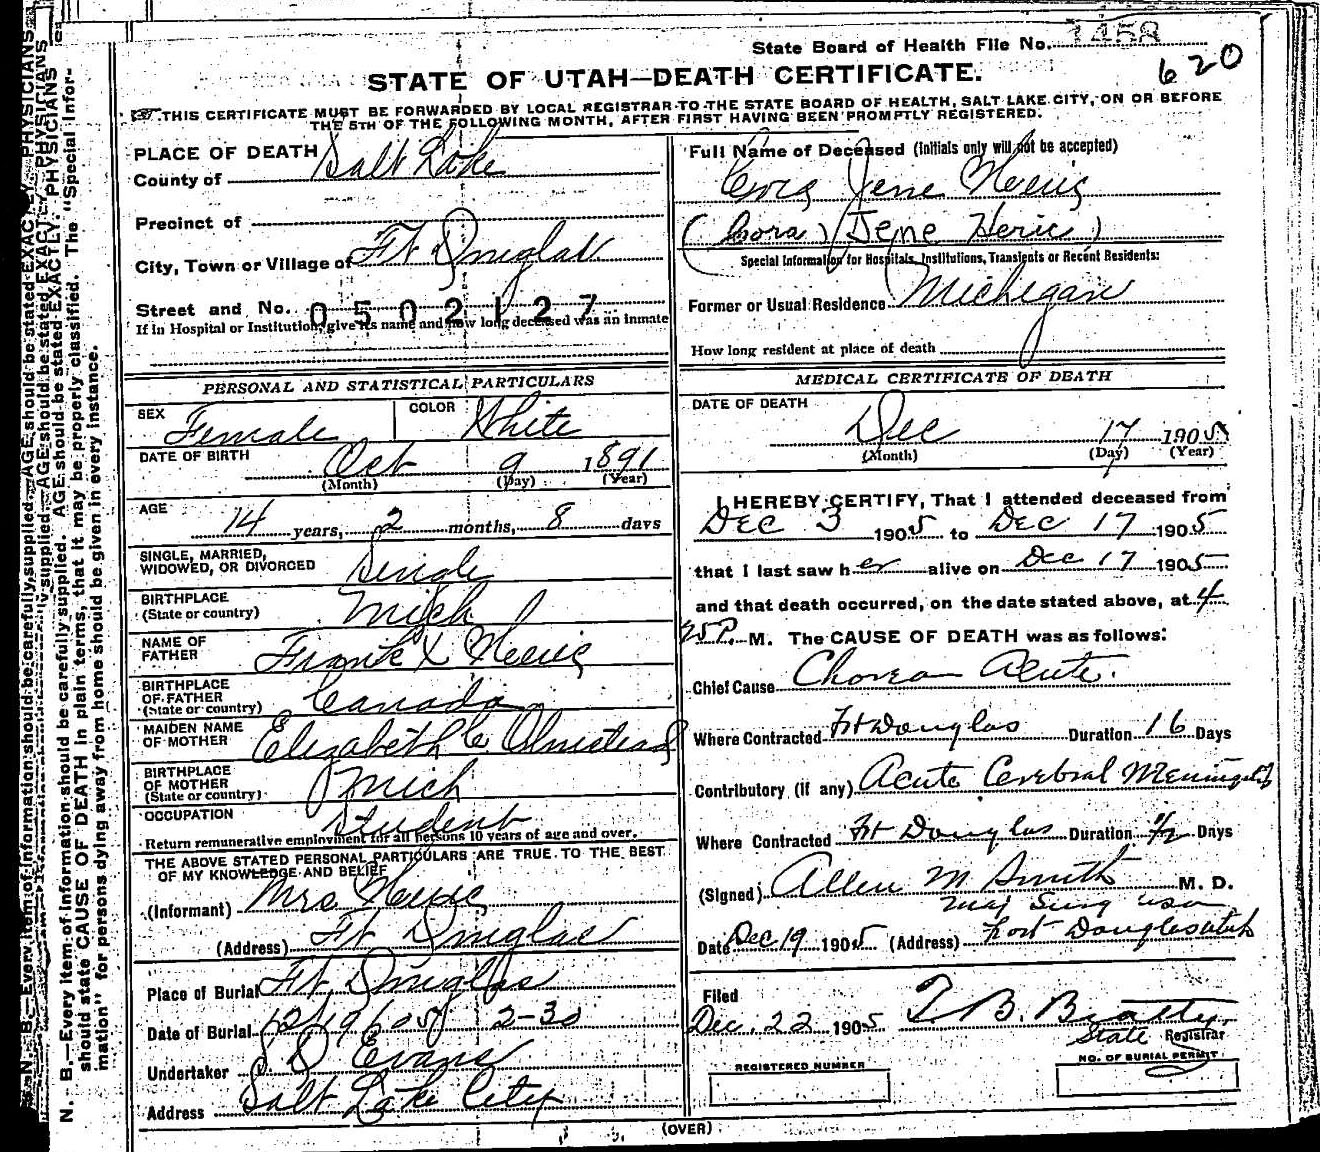 State Board of Health File No. 1458
620
STATE OF UTAH—DEATH CERTIFICATE.
THIS CERTIFICATE MUST BE FORWARDED BY LOCAL REGISTRAR TO THE STATE BOARD OF HEALTH, SALT LAKE CITY, ON OR BEFORE
THE 5TH OF THE FOLLOWING MONTH, AFTER FIRST HAVING BEEN PROMPTLY REGISTERED.
PLACE OF DEATH
County of Salt Lake
Precinct of
City, Town or Village of Ft Douglas
Street and No. 0502127
If in Hospital or Institution, give its name and how long deceased was an inmate
PERSONAL AND STATISTICAL PARTICULARS
SEX Female COLOR White
DATE OF BIRTH Oct 9 1891
(Month) (Day) (Year)
AGE 14 years, 2 months, 8 days
SINGLE, MARRIED,
WIDOWED, OR DIVORCED Single
BIRTHPLACE
(State or country) Mich
NAME OF
FATHER Frank X
BIRTHPLACE
OF FATHER
(State or country) Canada
MAIDEN NAME
OF MOTHER Elizabeth C Olmstead
BIRTHPLACE
OF MOTHER
(State or country) Mich
OCCUPATION Student
Return remunerative employment for all persons 10 years of age and over.
THE ABOVE STATED PERSONAL PARTICULARS ARE TRUE TO THE BEST
OF MY KNOWLEDGE AND BELIEF
(Informant) Mrs
(Address) Ft Douglas
Place of Burial Ft Douglas
Date of Burial 12/19/05 2-30
Undertaker S D Evans
Address Salt Lake City
Full Name of Deceased (Initials only will not be accepted)
Jene
(Cora) (Jene Heric)
Special Information for Hospitals, Institutions, Transients or Recent Residents:
Former or Usual Residence Michigan
How long resident at place of death
MEDICAL CERTIFICATE OF DEATH
DATE OF DEATH
Dec 17 1905
(Month) (Day) (Year)
I HEREBY CERTIFY, That I attended deceased from
Dec 3 1905 to Dec 17 1905
that I last saw her alive on Dec 17 1905
and that death occurred, on the date stated above, at 4
25 P. M. The CAUSE OF DEATH was as follows:
Chief Cause Chorea Acute.
Where Contracted Ft Douglas Duration 16 Days
Contributory (if any) Acute Cerebral Meningitis
Where Contracted Ft Douglas Duration 1/2 Days
(Signed) Allen M Smith M. D.
Maj Surg USA
Date Dec 19 1905 (Address) Fort Douglas Utah
Filed
Dec. 22 1905 T. B. Beatty
State Registrar
REGISTERED NUMBER
NO. OF BURIAL PERMIT
(OVER)
N. B.—Every item of information should be carefully supplied. AGE should be stated EXACTLY. PHYSICIANS
should state CAUSE OF DEATH in plain terms, that it may be properly classified. The "Special Infor-
mation" for persons dying away from home should be given in every instance.